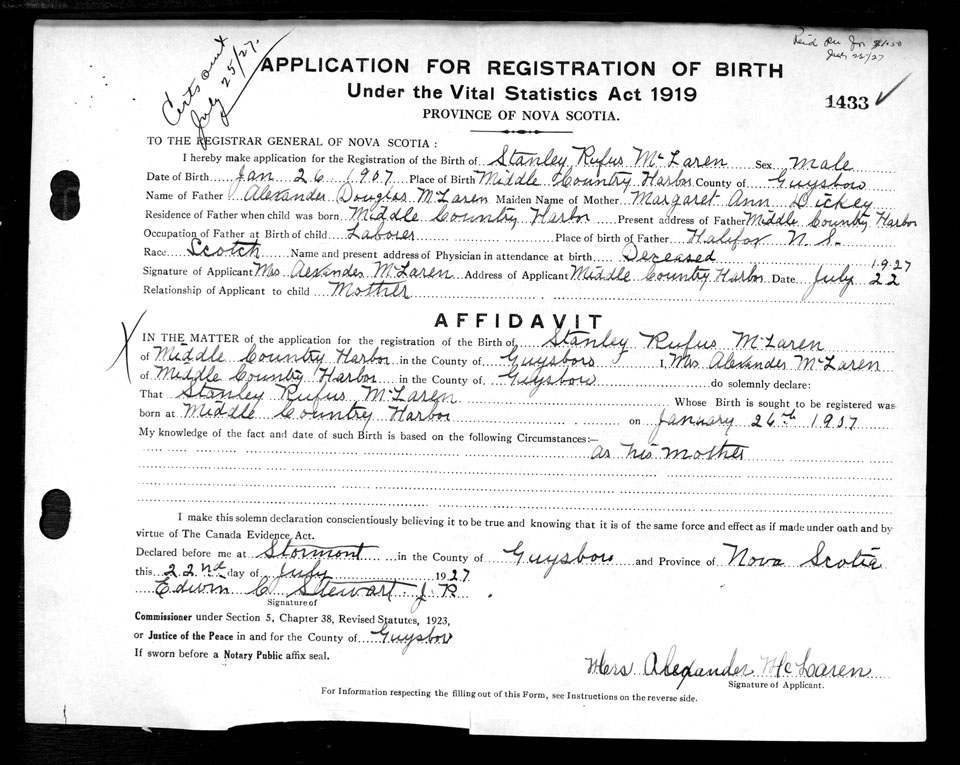 Certs out
July 25/27.
July 25/27
APPLICATION FOR REGISTRATION OF BIRTH
Under the Vital Statistics Act 1919
PROVINCE OF NOVA SCOTIA.
1433 ✓
TO THE REGISTRAR GENERAL OF NOVA SCOTIA:
I hereby make application for the Registration of the Birth of Stanley Rufus McLaren Sex male
Date of Birth Jan 26 1907 Place of Birth Middle Country Harbor County of Guysboro
Name of Father Alexander Douglas McLaren Maiden Name of Mother Margaret Ann Dickey
Residence of Father when child was born Middle Country Harbor Present address of Father Middle Country Harbor
Occupation of Father at Birth of child Laborer Place of birth of Father Halifax N.S.
Race Scotch Name and present address of Physician in attendance at birth Deceased
Signature of Applicant Mrs Alexander McLaren Address of Applicant Middle Country Harbor Date July 22 1927
Relationship of Applicant to child Mother
AFFIDAVIT
IN THE MATTER of the application for the registration of the Birth of Stanley Rufus McLaren
of Middle Country Harbor in the County of Guysboro I, Mrs Alexander McLaren
of Middle Country Harbor in the County of Guysboro do solemnly declare:
That Stanley Rufus McLaren Whose Birth is sought to be registered was
born at Middle Country Harbor on January 26th 1907
My knowledge of the fact and date of such Birth is based on the following Circumstances:—
as his mother
I make this solemn declaration conscientiously believing it to be true and knowing that it is of the same force and effect as if made under oath and by
virtue of The Canada Evidence Act.
Declared before me at Stormont in the County of Guysboro and Province of Nova Scotia
this 22nd day of July 1927
Edwin C Stewart J.P.
Signature of
Commissioner under Section 5, Chapter 38, Revised Statutes, 1923,
or Justice of the Peace in and for the County of Guysboro
If sworn before a Notary Public affix seal.
Mrs Alexander McLaren
Signature of Applicant.
For Information respecting the filling out of this Form, see Instructions on the reverse side.